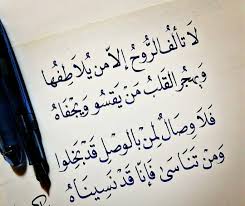 لَا تَألَفُ الرُّوحُ إِلَّا مَن يُلَاطِفُهَا
وَيَهجُرُ القَلبُ مَنْ يَقسُو وَيَجْفَاهُ
فَلَا وِصَالَ لِمَن بِالوَصْلِ قَدْ بَخِلُوا
وَمَنْ تَنَاسَىٰ فَإِنَّا قَد نَسِينَاهُ